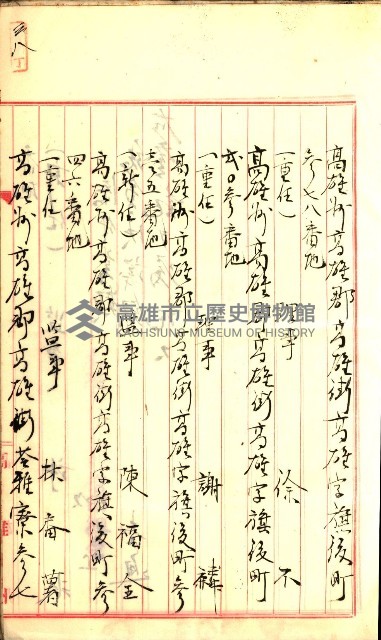 高雄州高雄郡高雄街高雄字旗後町
参七八番地
(重任) 理事 徐 不
高雄州高雄郡高雄街高雄字旗後町
弐〇参番地
(重任) 理事 謝
高雄州高雄郡高雄街高雄字旗後町参
六五番地
(新任) 監事 陳福全
高雄州高雄郡高雄街高雄字旗後町参
四六番地
(重任) 監事 林
高雄州高雄郡高雄街苓雅寮参七
高雄市立歷史博物館
KAOHSIUNG MUSEUM OF HISTORY